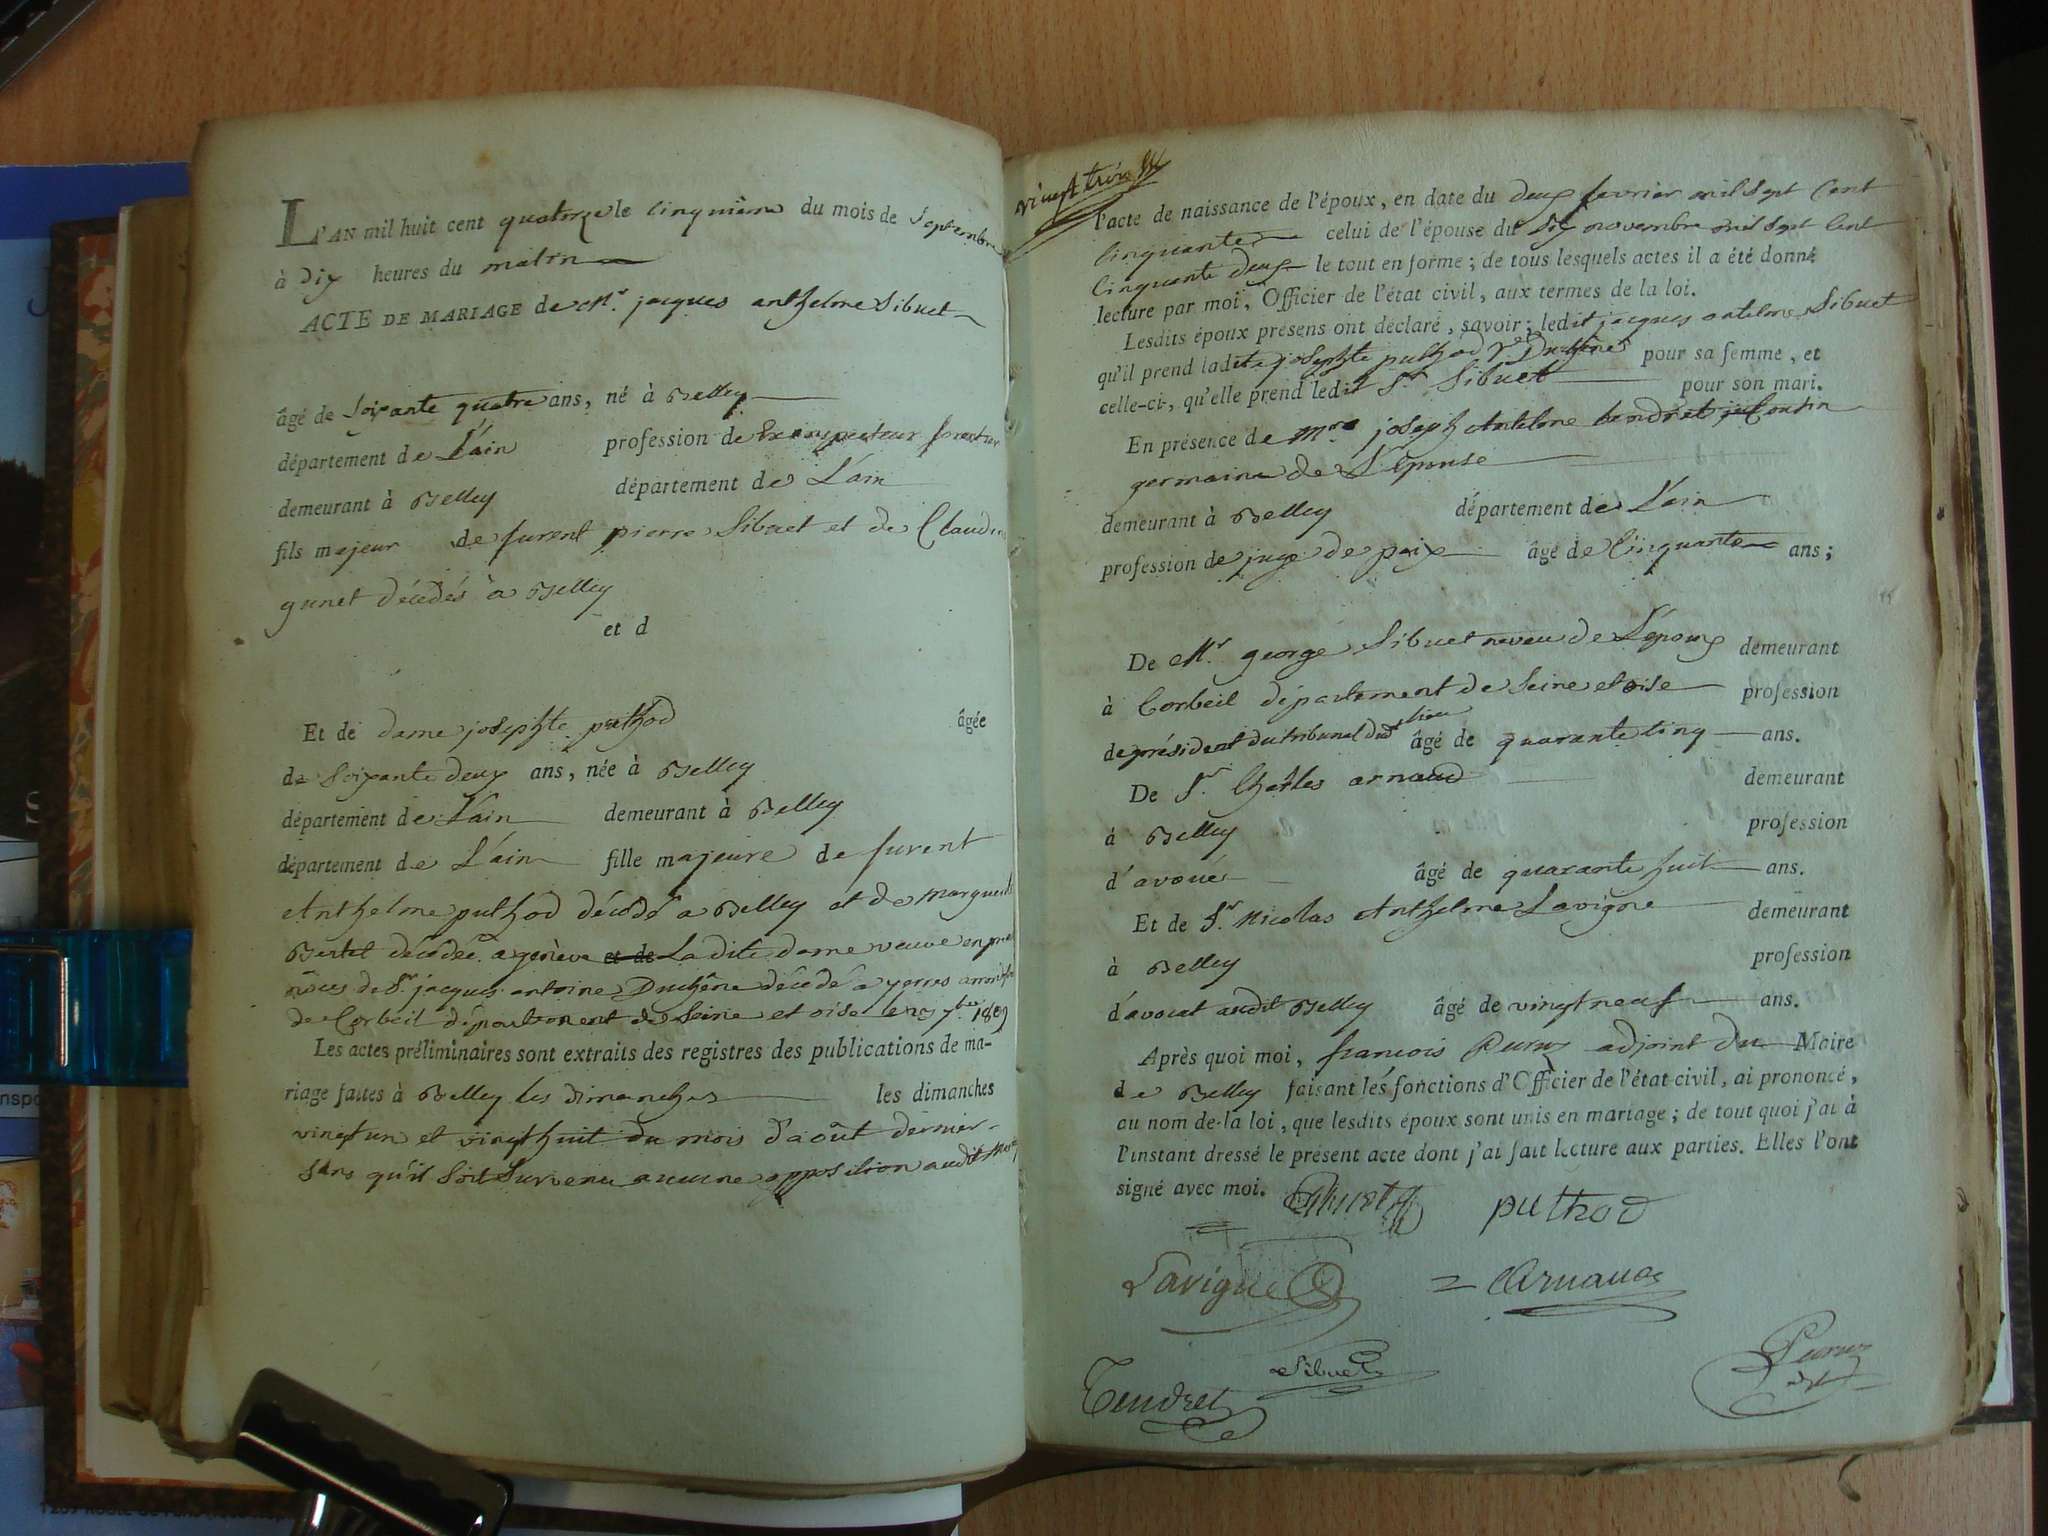 L'AN mil huit cent quatorze le cinquième du mois de septembre
à dix heures du matin
ACTE DE MARIAGE de Mr. jacques anthelme Sibuet
âgé de soixante quatre ans, né à Belley
département de L'ain profession de Ex inspecteur forestier
demeurant à Belley département de L'ain
fils majeur de furent pierre Sibuet et de Claudine
gunet décédés à Belley
et d
Et de dame josephte puthod âgée
de soixante deux ans, née à Belley
département de L'ain demeurant à Belley
département de L'ain fille majeure de furent
Anthelme puthod décédé a Belley et de marguerite
Bertet décédée a genève et de La dite dame veuve en
nôces de Sr. jacques antoine Duchêne décédé a yerres
de Corbeil département de Seine et oise le 7bre 1809
Les actes préliminaires sont extraits des registres des publications de ma-
riage faites à Belley les dimanches les dimanches
vingt un et vingt huit du mois d'août dernier
sans qu'il soit survenu aucune opposition audit
vingt trois
l'acte de naissance de l'époux, en date du deux fevrier mil sept cent
cinquante celui de l'épouse du dix novembre mil sept cent
cinquante deux le tout en forme; de tous lesquels actes il a été donné
lecture par moi, Officier de l'état civil, aux termes de la loi.
Lesdits époux présens ont déclaré, savoir; ledit jacques antelme Sibuet
qu'il prend ladite josephte puthod Ve Duchêne pour sa femme, et
celle-ci, qu'elle prend ledit Sr Sibuet pour son mari.
En présence de joseph Antelme tendret Cousin
germain de L'épouse
demeurant à Belley département de L'ain
profession de juge de paix âgé de Cinquante ans;
De Mr. george Sibuet neveu de L'époux demeurant
à Corbeil département de Seine et oise profession
de président du tribunal dud. lieu âgé de quarante cinq ans.
De Sr. Charles arnaud demeurant
à Belley profession
d'avoué âgé de quarante huit ans.
Et de Sr. Nicolas Anthelme Lavigne demeurant
à Belley profession
d'avocat audit Belley âgé de vingt neuf ans.
Après quoi moi, françois adjoint du Maire
de Belley faisant les fonctions d'Officier de l'état civil, ai prononcé,
au nom de la loi, que lesdits époux sont unis en mariage; de tout quoi j'ai à
l'instant dressé le présent acte dont j'ai fait lecture aux parties. Elles l'ont
signé avec moi. Sibuet puthod
Lavigne = Arnaud
Tendret Sibuet